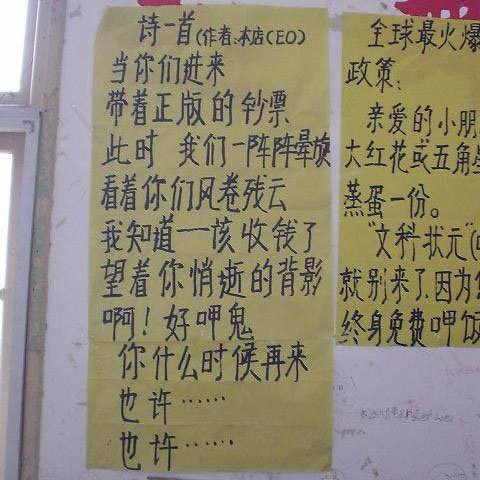 诗一首(作者:本店CEO)
当你们进来
带着正版的钞票
此时 我们一阵阵晕旋
看着你们风卷残云
我知道一该收钱了
望着你悄逝的背影
啊！好呷鬼
你什么时候再来
也许……
也许……
全球最火爆
政策:
亲爱的小朋
大红花或五角星
蒸蛋一份。
"文科状元"(
就别来了.因为
终身免费呷饭